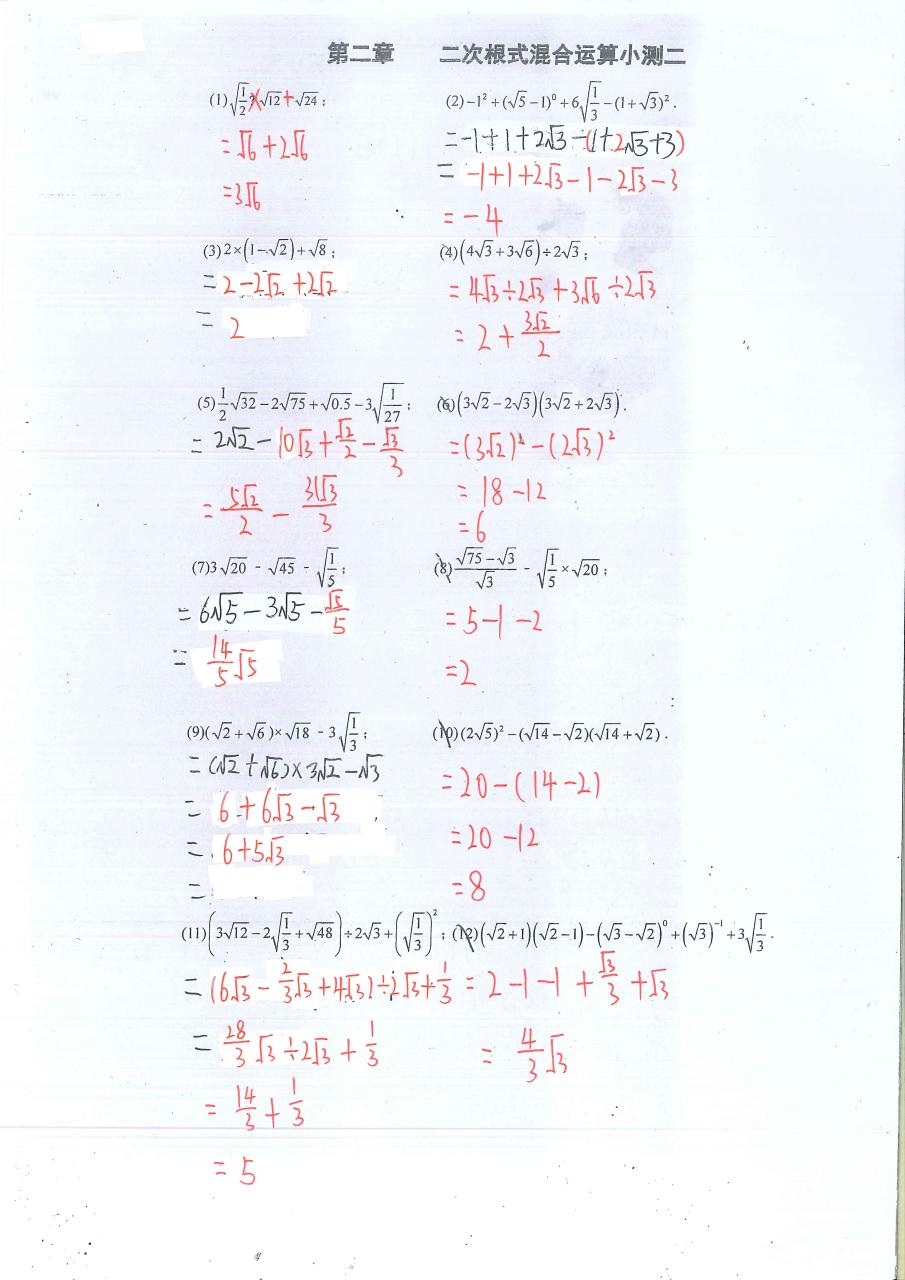 第二章 二次根式混合运算小测二
(1)√(1/2)×√12+√24；
=√6+2√6
=3√6
(2)-1²+(√5-1)⁰+6√(1/3)-(1+√3)².
=-1+1+2√3-(1+2√3+3)
=-1+1+2√3-1-2√3-3
=-4
(3)2×(1-√2)+√8；
=2-2√2+2√2
=2
(4)(4√3+3√6)÷2√3；
=4√3÷2√3+3√6÷2√3
=2+3√2/2
(5)1/2√32-2√75+√0.5-3√(1/27)；
=2√2-10√3+√2/2-√3/3
=5√2/2-31√3/3
(6)(3√2-2√3)(3√2+2√3).
=(3√2)²-(2√3)²
=18-12
=6
(7)3√20-√45-√(1/5)；
=6√5-3√5-√5/5
=14/5√5
(8)(√75-√3)/√3-√(1/5)×√20；
=5-1-2
=2
(9)(√2+√6)×√18-3√(1/3)；
=(√2+√6)×3√2-√3
=6+6√3-√3
=6+5√3
=
(10)(2√5)²-(√14-√2)(√14+√2).
=20-(14-2)
=20-12
=8
(11)(3√12-2√(1/3)+√48)÷2√3+(√(1/3))²；
=(6√3-2/3√3+4√3)÷2√3+1/3
=28/3√3÷2√3+1/3
=14/3+1/3
=5
(12)(√2+1)(√2-1)-(√3-√2)⁰+(√3)⁻¹+3√(1/3).
=2-1-1+√3/3+√3
=4/3√3